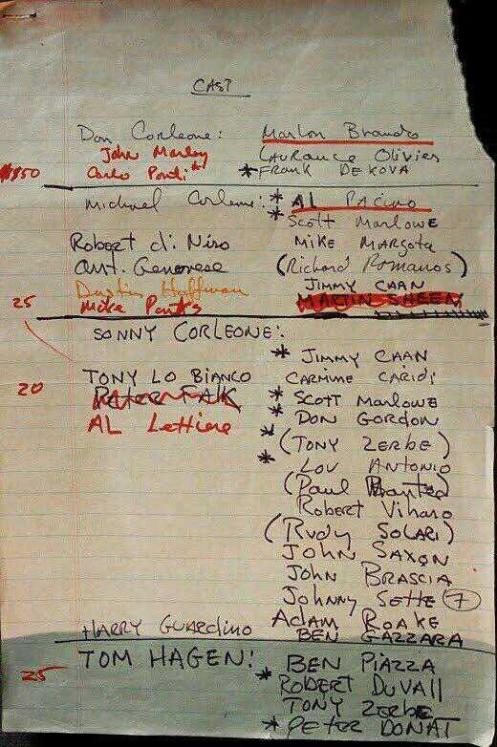 CAST
Don Corleone: Marlon Brando
John Marley Laurance Olivier
$150 Carlo Ponti* *FRANK DEKOVA
Michael Corleone: * AL PACINO
* Scott Marlowe
Robert di. Niro MIKE MARGOTA
Ant. Genovese (Richard Romanos)
Dustin Hoffman JIMMY CAAN
25 Mike MARTIN SHEEN
SONNY CORLEONE:
* JIMMY CAAN
TONY LO BIANCO CARMINE CARIDI
20 PETER FALK * Scott Marlowe
AL Lettiere * DON GORDON
* (TONY ZERBE)
* LOU ANTONIO
(Paul)
Robert Viharo
(RUDY SOLARI)
JOHN SAXON
JOHN BRASCIA
Johnny SETTE (7)
ADAM ROAKE
HARRY GUARDINO BEN GAZZARA
TOM HAGEN: BEN PIAZZA
25 * ROBERT DUVALL
TONY ZERBE
* PETER DONAT